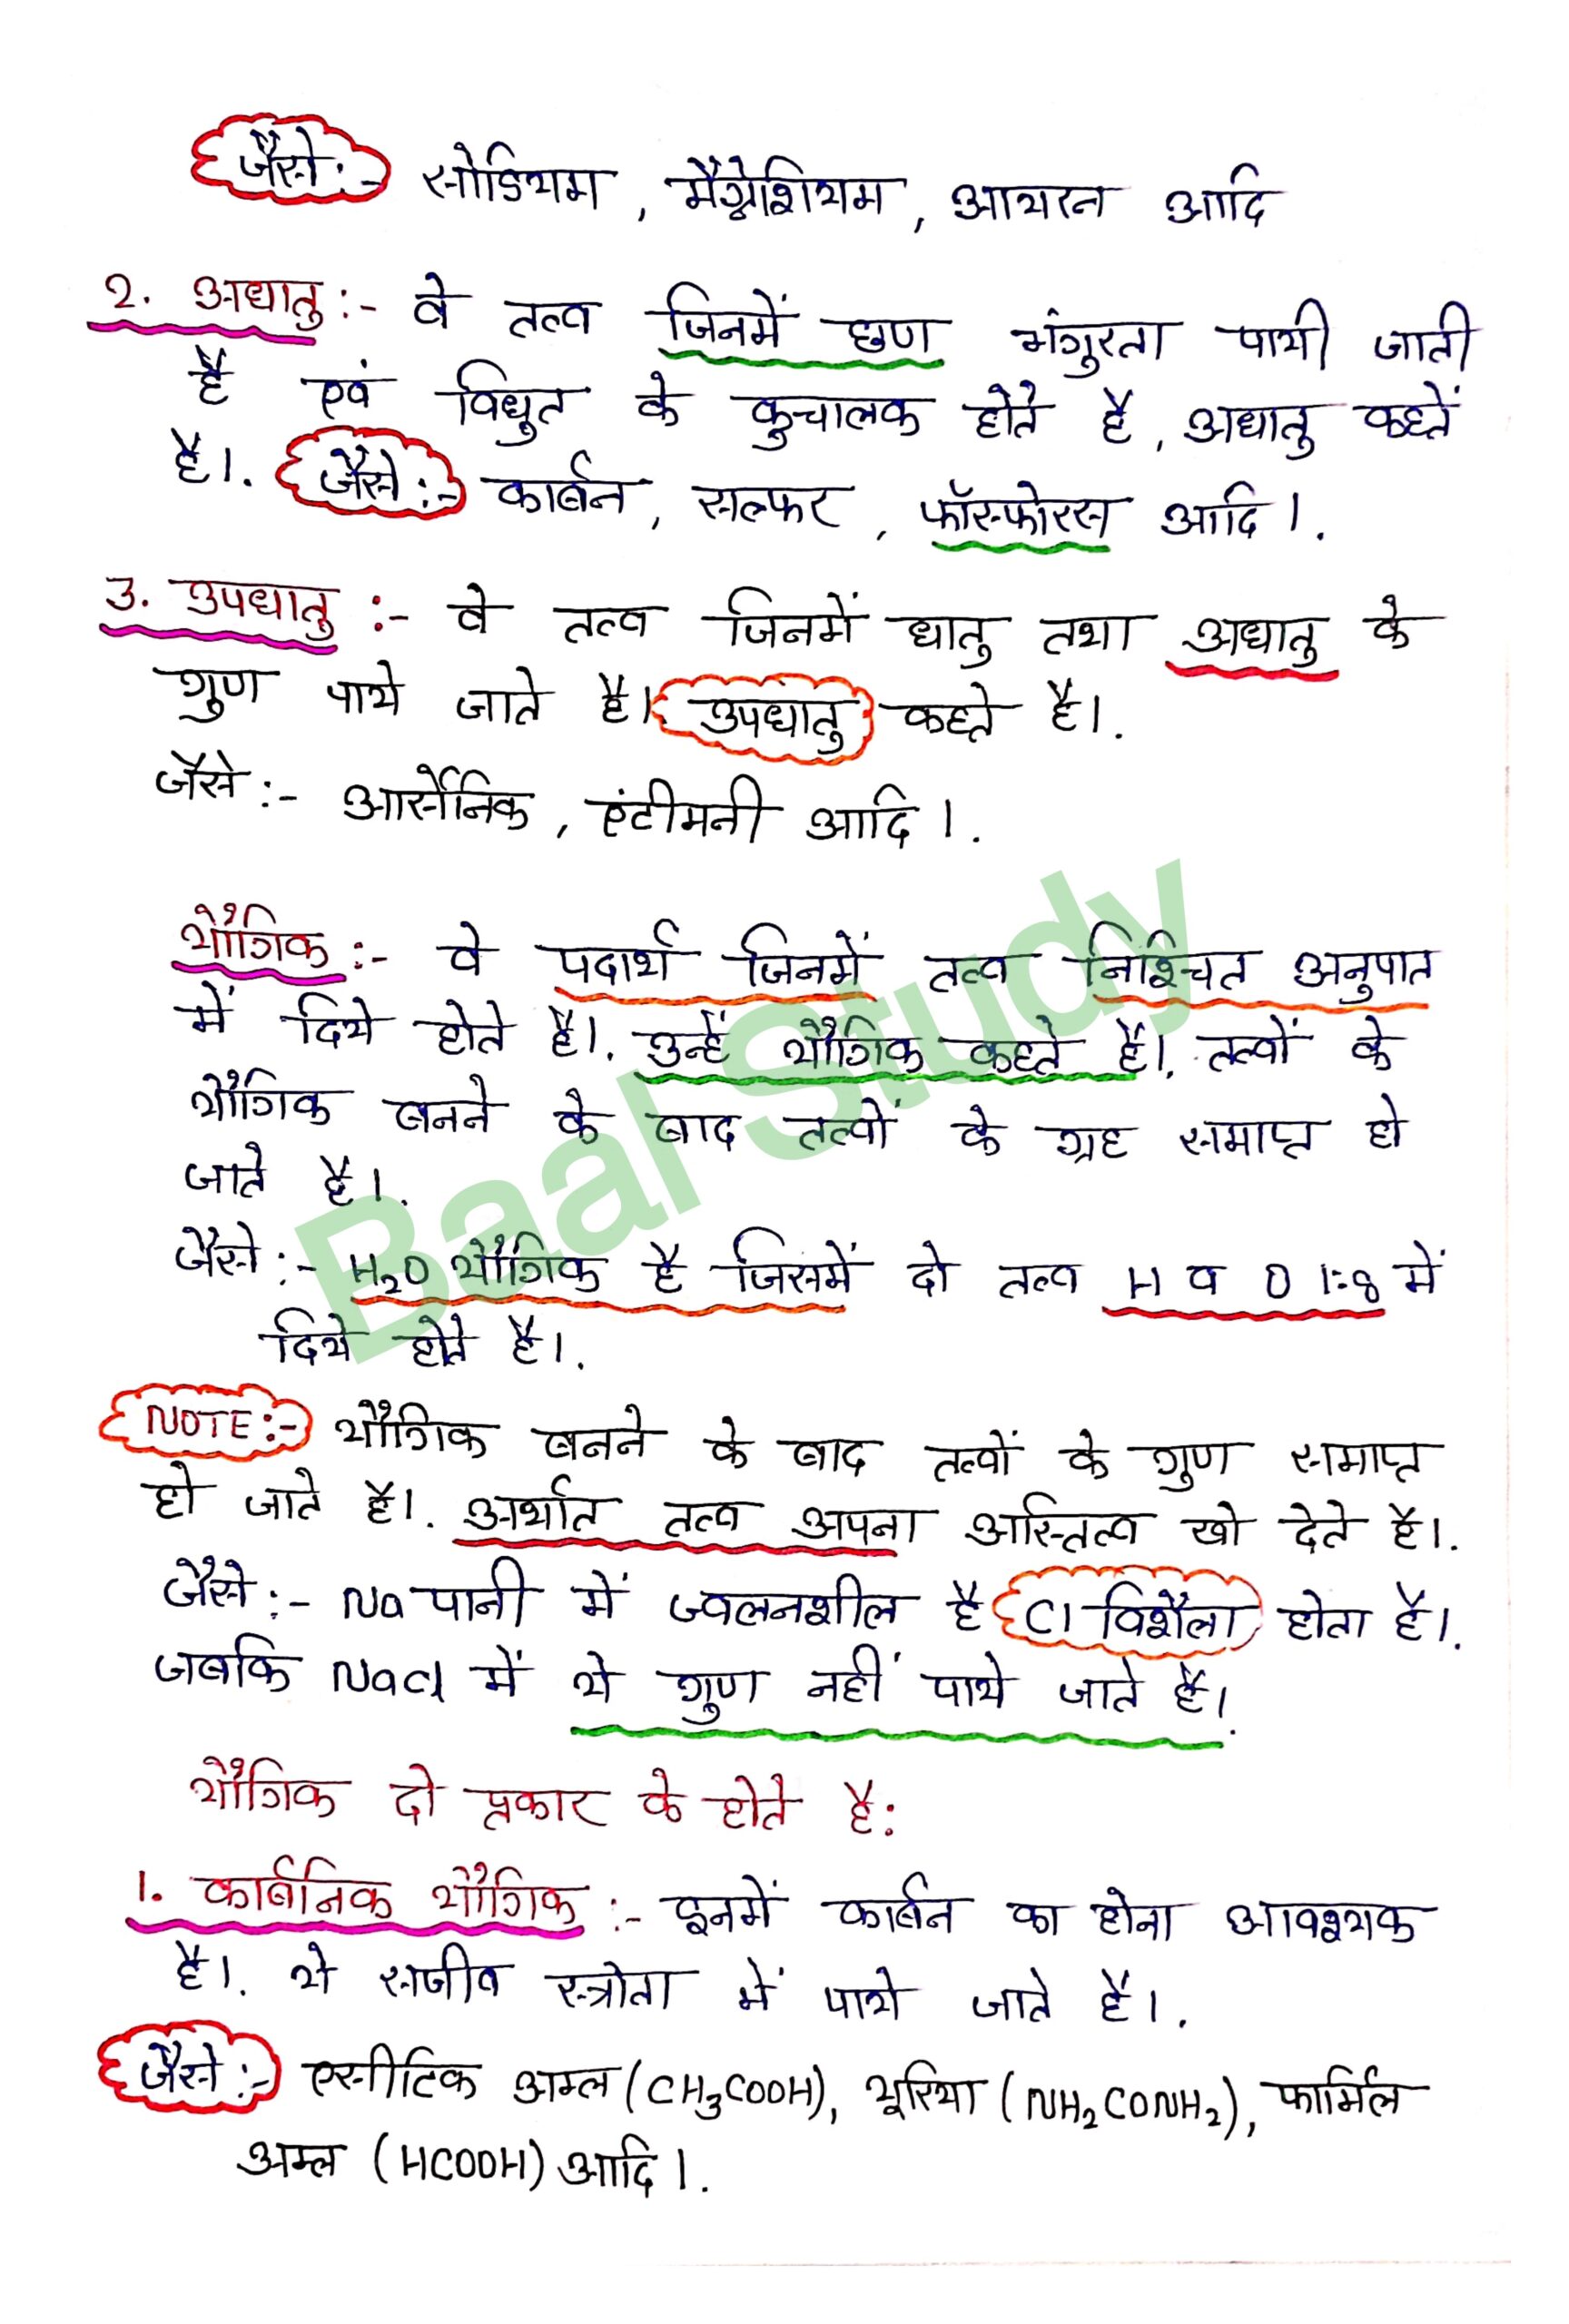 जैसे:- सोडियम, मैग्नेशियम, आयरन आदि
2. अधातु:- वे तत्व जिनमें छण भंगुरता पायी जाती
है एवं विधुत के कुचालक होते है, अधातु कहतें
है।. जैसे:- कार्बन, सल्फर, फॉस्फोरस आदि।.
3. उपधातु:- वे तत्व जिनमें धातु तथा अधातु के
गुण पाये जाते है। उपधातु कहते है।.
जैसे:- आर्सेनिक, एंटीमनी आदि।.
यौगिक:- वे पदार्थ जिनमें तत्व निश्चित अनुपात
में दिये होते है।. उन्हें यौगिक कहते है।. तत्वों के
यौगिक बनने के बाद तत्वों के ग्रह समाप्त हो
जाते है।.
जैसे:- H₂O यौगिक है जिसमें दो तत्व H व O 1:8 में
दिये होते है।.
NOTE:- यौगिक बनने के बाद तत्वों के गुण समाप्त
हो जाते है।. अर्थात तत्व अपना अस्तित्व खो देते है।.
जैसे:- Na पानी में ज्वलनशील है Cl विशैला होता है।.
जबकि NaCl में ये गुण नहीं पाये जाते है।.
यौगिक दो प्रकार के होते है:
1. कार्बनिक यौगिक:- इनमें कार्बन का होना आवश्यक
है।. ये सजीव स्त्रोता में पाये जाते है।.
जैसे:- एसीटिक अम्ल (CH₃COOH), यूरिया (NH₂CONH₂), फार्मिल
अम्ल (HCOOH) आदि।.
Baal Study